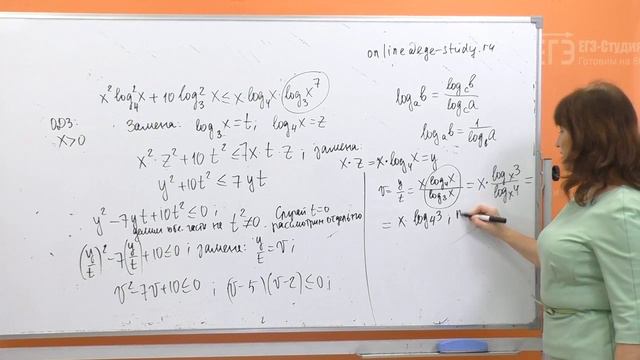 online@ege-study.ru
ЕГЭ-Студия
Готовим на
x² log₄² x + 10 log₃² x ≤ x log₄ x · log₃ x⁷
ОДЗ:
x>0
Замена: log₃ x = t; log₄ x = z
x²·z² + 10t² ≤ 7x·t·z; замена:
x·z = x·log₄ x = y
y² + 10t² ≤ 7yt
y² - 7yt + 10t² ≤ 0;
делим обе части на t² ≠ 0. Случай t=0
рассмотрим отдельно
(y/t)² - 7(y/t) + 10 ≤ 0; замена: y/t = v;
v² - 7v + 10 ≤ 0; (v-5)(v-2) ≤ 0;
logₐ b = log_c b / log_c a
logₐ b = 1 / log_b a
v = y/t = x·log₄ x / log₃ x = x · logₓ 3 / logₓ 4 =
= x · log₄ 3;